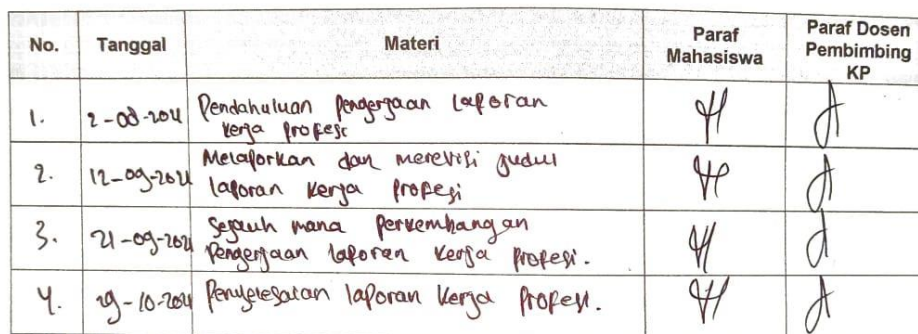 No. Tanggal Materi Paraf Mahasiswa Paraf Dosen Pembimbing KP
1. 2-08-2021 Pendahuluan pengerjaan laporan
kerja profesi
2. 12-09-2021 Melaporkan dan merevisi judul
laporan kerja profesi
3. 21-09-2021 Sejauh mana perkembangan
pengerjaan laporan kerja profesi.
4. 29-10-2021 Penyelesaian laporan kerja profesi.